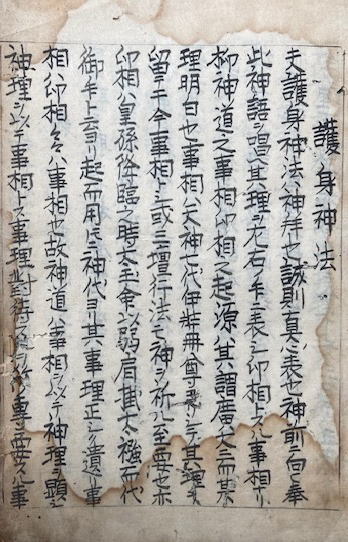 護身神法
夫護身神法ハ神拜也誠則真之表也神前ニ向テ奉
此神語ヲ唱ヘ其理ヲ左右ノ手ニ表シ印相トス事相ナリ
抑神道之事相印相之起源ハ其謂廣大ニ而其
理明白也事相ハ天神七代伊弉冊尊 其理ヲ
留テ千今事相トシ或三壇行法モ神ヲ祈ル至要也亦
印相ハ皇孫降臨之時太玉命以弱肩甚太襁而代
御手ト云ヨリ起而用ルニ神代ヨリ其事理正シク遺ル事
相ハ印相々ハ事相也故神道ハ事相ヲ以テ神理ヲ顕シ
神理ヲ以テ事相トス事理對待 專要ス ハ事